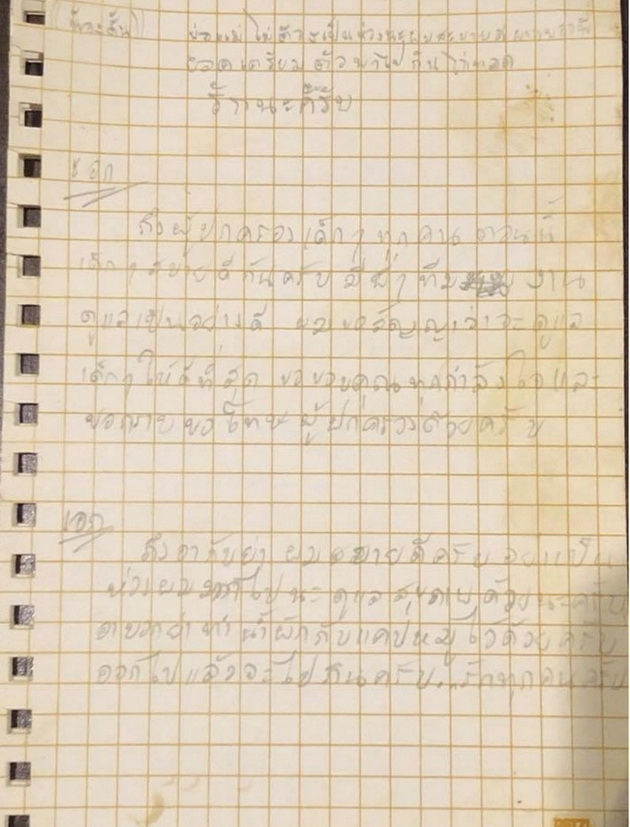 พ่อแม่ไม่ต้องเป็นห่วงนะผมสบายดี
ยอดเตรียมตัวพาไปกินไก่ทอด
รักนะครับ
ถึงผู้ปกครองเด็กๆ ทุกคน ตอนนี้
เด็กๆ สบายดีกันครับ มีพี่ๆ ทีม งาน
ดูแลเป็นอย่างดี ผมขอสัญญาว่าจะดูแล
เด็กๆ ให้ดีที่สุด ขอขอบคุณทุกกำลังใจและ
ขอกราบขอโทษผู้ปกครองด้วยครับ
เอก
ถึงอากับย่า ผมสบายดีครับ อย่าเป็น
ห่วงผมมากไปนะ ดูแลสุขภาพด้วยนะครับ
ย่าทำน้ำผักกับแคปหมูไว้ด้วยครับ
ออกไปแล้วจะไปกินครับ..รักทุกคนครับ